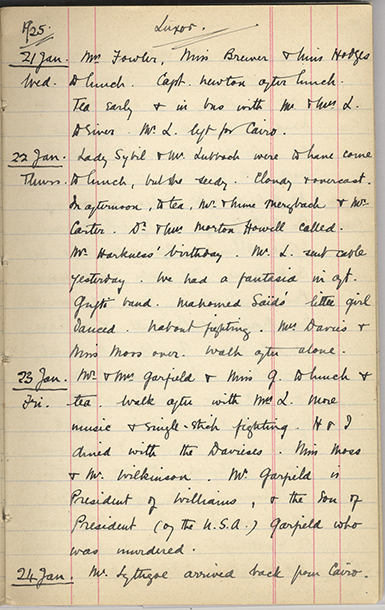 1925. Luxor.
21 Jan. Mrs Fowler, Miss Brewer & Miss Hodges
Wed. to lunch. Capt. Newton after lunch.
Tea early & in bus with Mr & Mrs L.
to river. Mr. L. left for Cairo.
22 Jan. Lady Sybil & Mr. Lubbock were to have come
Thurs. to lunch, but she seedy. Cloudy & overcast.
In afternoon, to tea, Mr. & Mme Merzbach & Mr.
Carter. Dr. & Mrs Morton Howell called.
Mr Harkness' birthday. Mr. L. sent cable
yesterday. We had a fantasia in cyt.
band. Mahomed Said's little girl
danced. Nabout fighting. Mrs Davies &
Miss Moss over. Walk after alone.
23 Jan. Mr. & Mrs Garfield & Miss G. to lunch &
Fri. tea. Walk after with Mrs L. More
music & single-stick fighting. H & I
dined with the Davieses. Miss Moss
& Mr. Wilkinson. Mr. Garfield is
President of Williams, & the son of
President (of the U.S.A.) Garfield who
was murdered.
24 Jan. Mr. Lythgoe arrived back from Cairo.